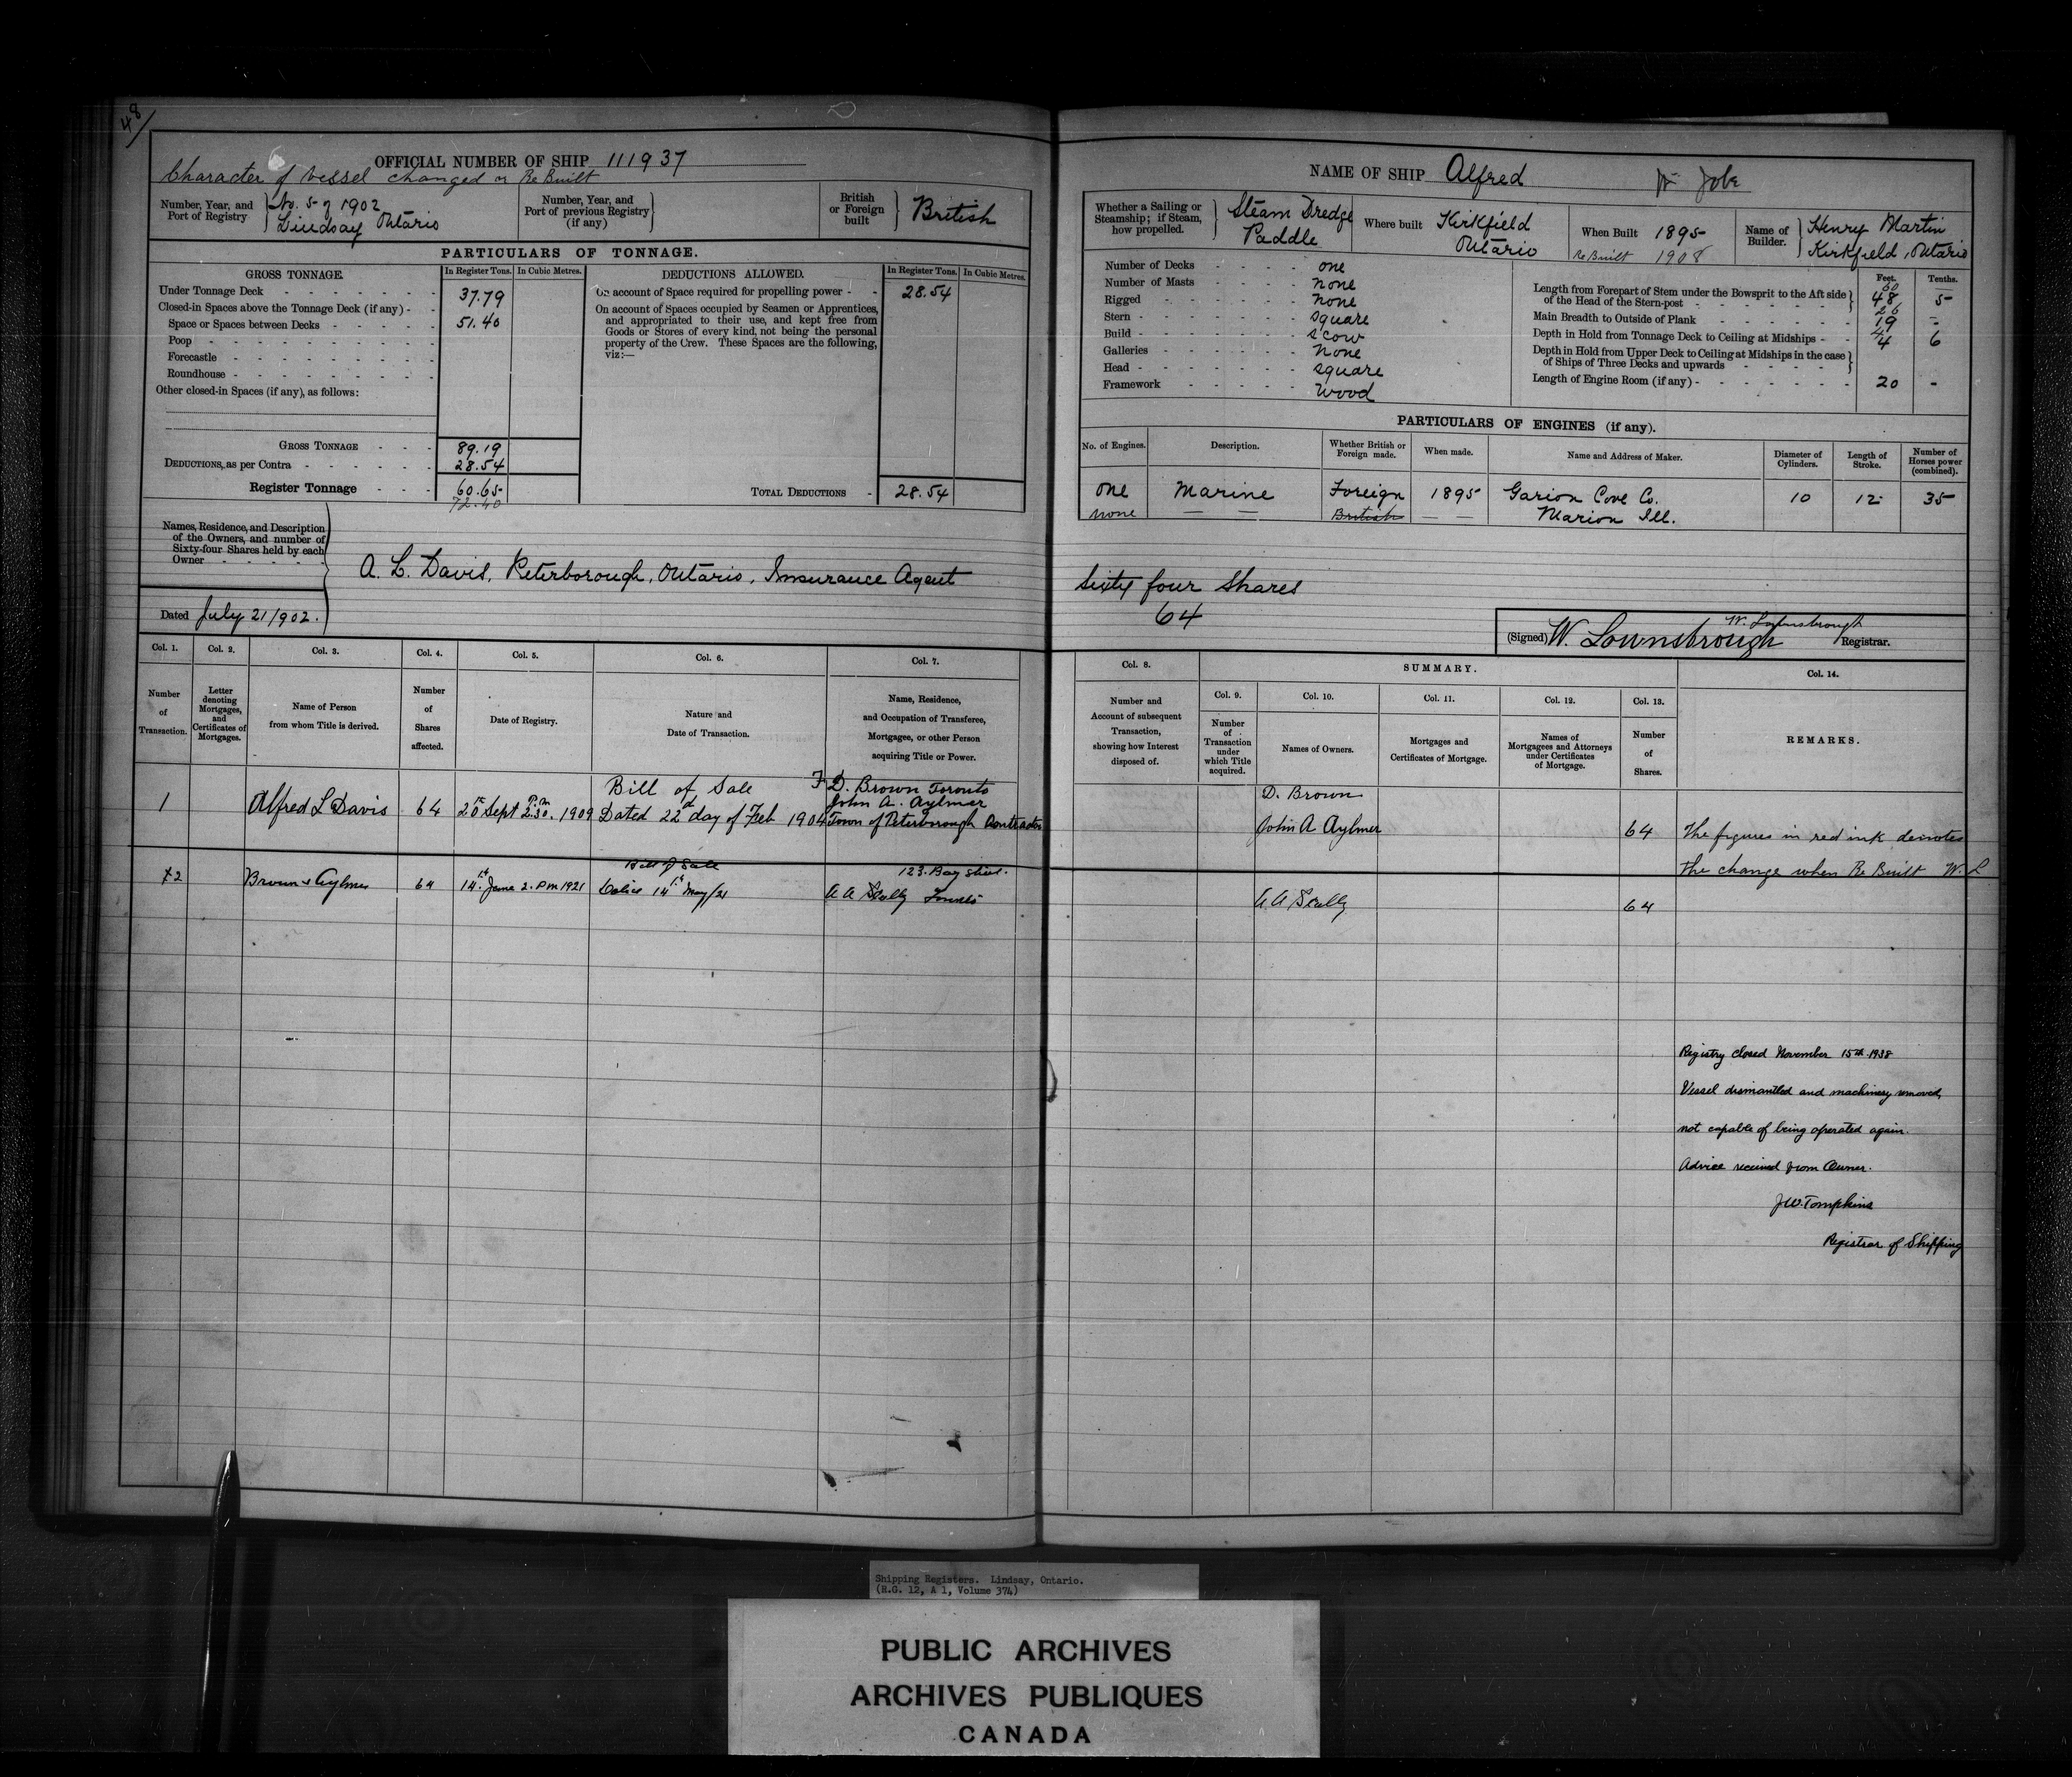 48
OFFICIAL NUMBER OF SHIP 111937
Character of vessel changed or Re Built
Number, Year, and Port of Registry } No. 5 of 1902 Lindsay Ontario
Number, Year, and Port of previous Registry (if any)
British or Foreign built } British
PARTICULARS OF TONNAGE.
GROSS TONNAGE. In Register Tons. In Cubic Metres.
Under Tonnage Deck 37.79
Closed-in Spaces above the Tonnage Deck (if any)
Space or Spaces between Decks 51.40
Poop
Forecastle
Roundhouse
Other closed-in Spaces (if any), as follows:
GROSS TONNAGE 89.19
DEDUCTIONS, as per Contra 28.54
Register Tonnage 60.65
72.40
DEDUCTIONS ALLOWED. In Register Tons. In Cubic Metres.
On account of Space required for propelling power 28.54
On account of Spaces occupied by Seamen or Apprentices,
and appropriated to their use, and kept free from
Goods or Stores of every kind, not being the personal
property of the Crew. These Spaces are the following,
viz:—
TOTAL DEDUCTIONS 28.54
Names, Residence, and Description
of the Owners, and number of
Sixty-four Shares held by each
Owner
A. L. Davis, Peterborough, Ontario, Insurance Agent
Dated July 21/902.
Col. 1. Col. 2. Col. 3. Col. 4. Col. 5. Col. 6. Col. 7.
Number of Transaction.
Letter denoting Mortgages, and Certificates of Mortgages.
Name of Person from whom Title is derived.
Number of Shares affected.
Date of Registry.
Nature and Date of Transaction.
Name, Residence, and Occupation of Transferee, Mortgagee, or other Person acquiring Title or Power.
Bill of Sale D. Brown Toronto
John A. Aylmer
1 Alfred L Davis 64 20th Sept P.m 2.30. 1909 Dated 22d day of Feb 1904 Town of Peterborough Contractor
Bill of Sale 123 Bay
2 Brown & Aylmer 64 14th June 2. Pm 1921 14th May/21 A A Scully
NAME OF SHIP Alfred
Whether a Sailing or Steamship; if Steam, how propelled. } Steam Dredge Paddle
Where built Kirkfield Ontario
When Built 1895
Re Built 1908
Name of Builder. } Henry Martin Kirkfield, Ontario
Number of Decks one
Number of Masts None
Rigged None
Stern square
Build scow
Galleries None
Head square
Framework Wood
Feet. Tenths.
Length from Forepart of Stem under the Bowsprit to the Aft side of the Head of the Stern-post 48 5
Main Breadth to Outside of Plank 19 -
Depth in Hold from Tonnage Deck to Ceiling at Midships 4 6
Depth in Hold from Upper Deck to Ceiling at Midships in the case of Ships of Three Decks and upwards
Length of Engine Room (if any) 20 -
PARTICULARS OF ENGINES (if any).
No. of Engines. Description. Whether British or Foreign made. When made. Name and Address of Maker. Diameter of Cylinders. Length of Stroke. Number of Horses power (combined).
One Marine Foreign 1895 10 12 35
none — — British — — Marion Ill.
Sixty four Shares
64
(Signed) W. Lownsbrough Registrar.
W. Lownsbrough
Col. 8. SUMMARY. Col. 14.
Col. 9. Col. 10. Col. 11. Col. 12. Col. 13.
Number and Account of subsequent Transaction, showing how Interest disposed of.
Number of Transaction under which Title acquired.
Names of Owners.
Mortgages and Certificates of Mortgage.
Names of Mortgagees and Attorneys under Certificates of Mortgage.
Number of Shares.
REMARKS.
D. Brown
John A Aylmer 64 The figures in red ink denotes
the change when Re Built W. L
A A Scully 64
Registry closed November 15th 1938
Vessel dismantled and machinery removed,
not capable of being operated again.
Advice received from Owner.
J W Tompkins
Registrar of Shipping
Shipping Registers. Lindsay, Ontario.
(R.G. 12, A 1, Volume 374)
PUBLIC ARCHIVES
ARCHIVES PUBLIQUES
CANADA